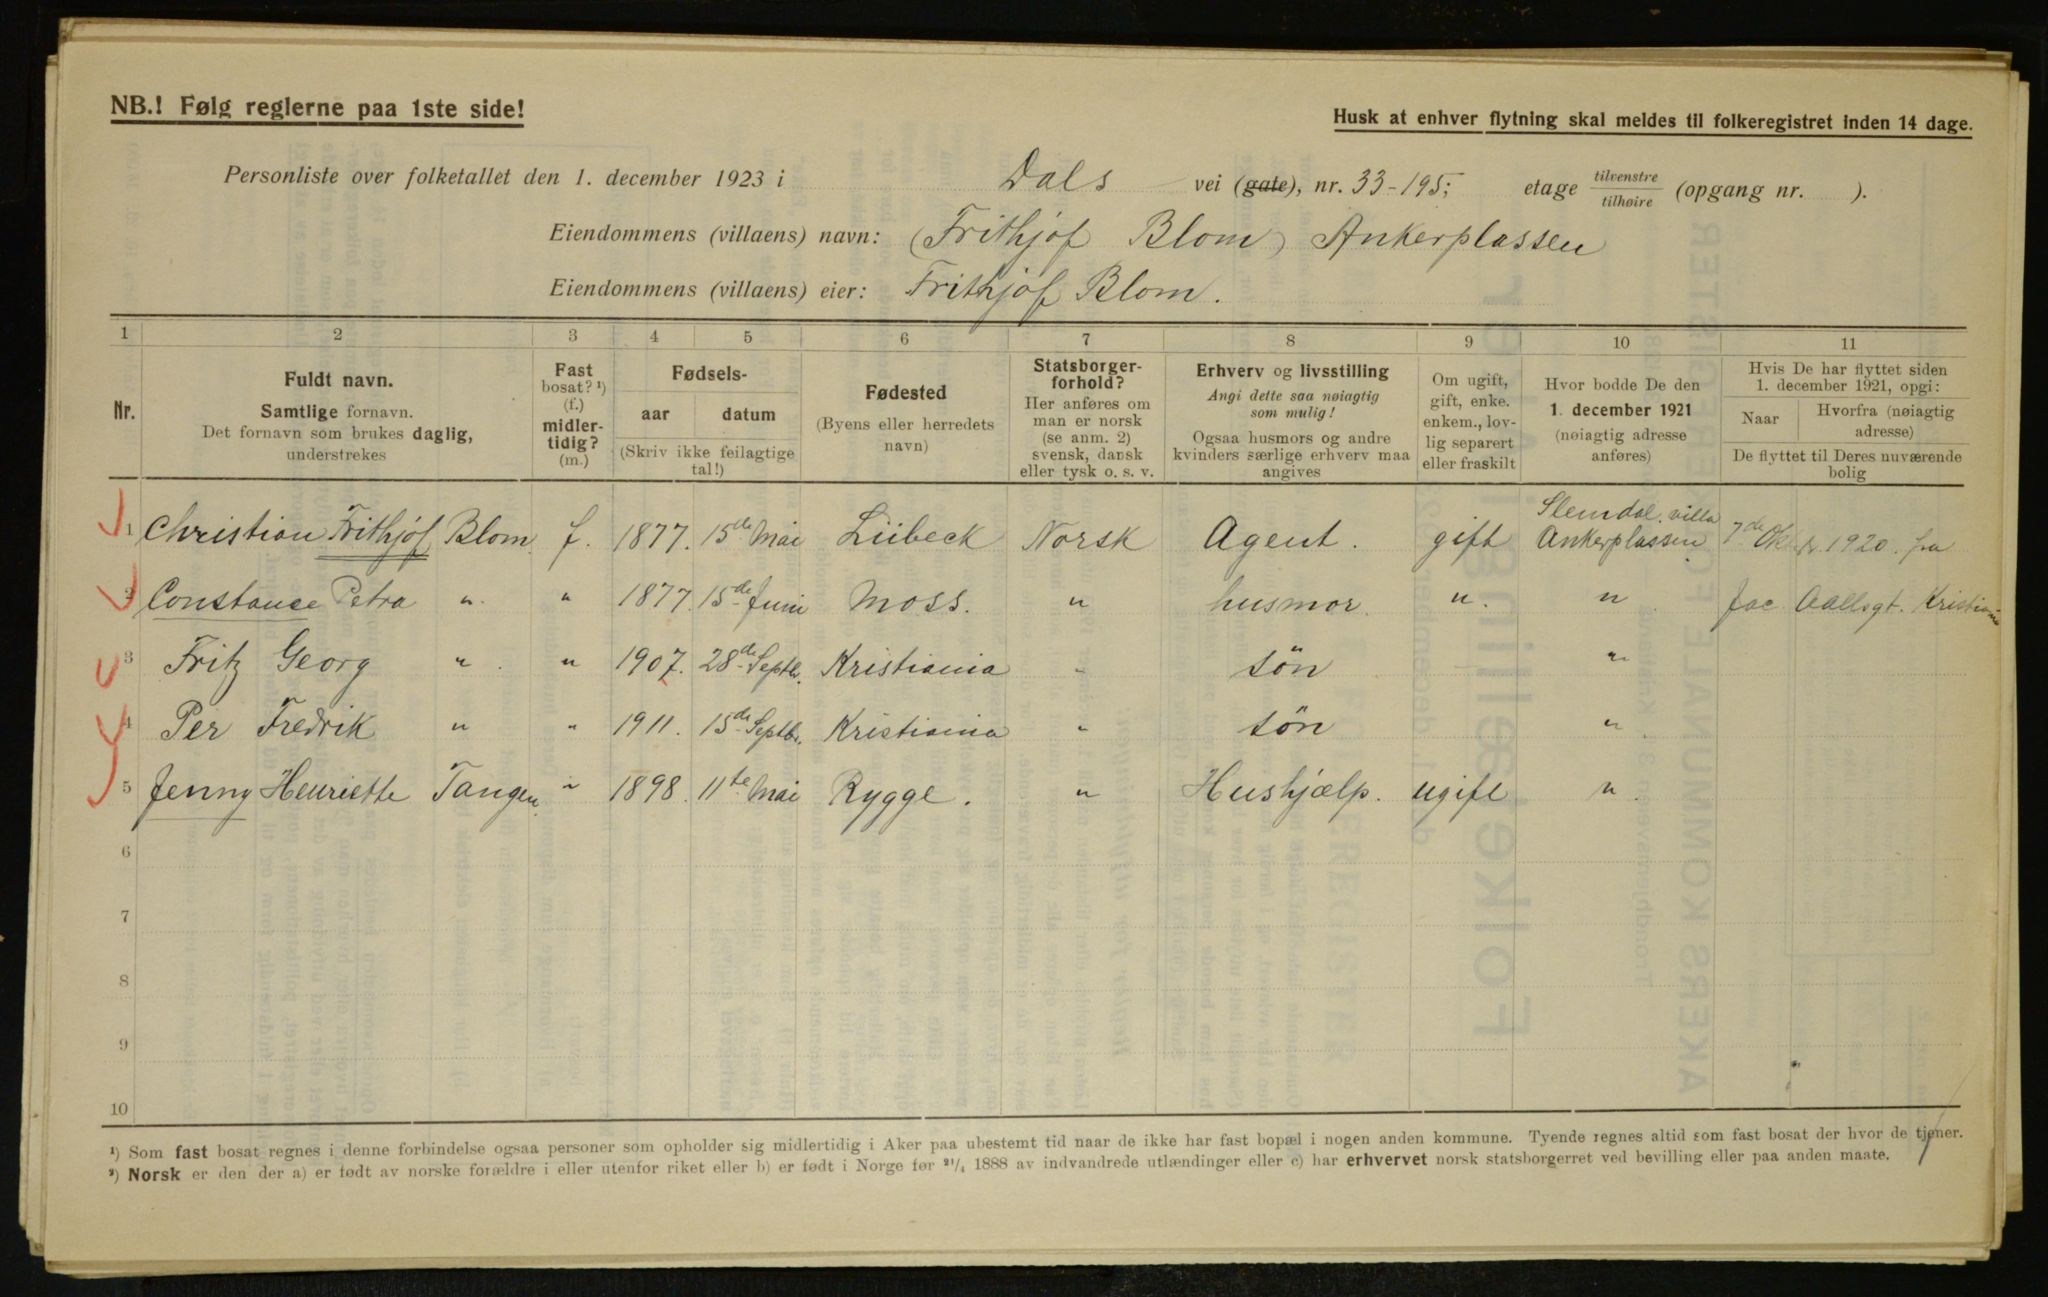 NB.! Følg reglerne paa 1ste side!
Husk at enhver flytning skal meldes til folkeregistret inden 14 dage.
Personliste over folketallet den 1. december 1923 i Dals vei (gate), nr. 33-195; etage tilvenstre/tilhøire (opgang nr. ).
Eiendommens (villaens) navn: (Frithjof Blom) Ankerplassen
Eiendommens (villaens) eier: Frithjof Blom.
1 2 3 4 5 6 7 8 9 10 11
Nr.
Fuldt navn.
Samtlige fornavn.
Det fornavn som brukes daglig,
understrekes
Fast
bosat? ¹)
(f.)
midler-
tidig?
(m.)
Fødsels-
aar datum
(Skriv ikke feilagtige
tal!)
Fødested
(Byens eller herredets
navn)
Statsborger-
forhold?
Her anføres om
man er norsk
(se anm. 2)
svensk, dansk
eller tysk o. s. v.
Erhverv og livsstilling
Angi dette saa nøiagtig
som mulig!
Ogsaa husmors og andre
kvinders særlige erhverv maa
angives
Om ugift,
gift, enke.
enkem., lov-
lig separert
eller fraskilt
Hvor bodde De den
1. december 1921
(nøiagtig adresse
anføres)
Hvis De har flyttet siden
1. december 1921, opgi:
Naar Hvorfra (nøiagtig
adresse)
De flyttet til Deres nuværende
bolig
1 Christian Frithjof Blom f. 1877. 15de Mai Lübeck Norsk Agent. gift Slemdal. villa Ankerplassen 7de Oktbr. 1920. fra
2 Constance Petra " " 1877. 15de Juni Moss. " husmor. " " Jac. Aallsgt. Kristiania
3 Fritz Georg " " 1907. 28de Septbr. Kristiania " søn "
4 Per Fredrik " " 1911. 15de Septbr. Kristiania " søn "
5 Jenny Henriette Tangen " 1898. 11te Mai Rygge. " Hushjælp. ugift "
6
7
8
9
10
¹) Som fast bosat regnes i denne forbindelse ogsaa personer som opholder sig midlertidig i Aker paa ubestemt tid naar de ikke har fast bopæl i nogen anden kommune. Tyende regnes altid som fast bosat der hvor de tjener.
²) Norsk er den der a) er født av norske forældre i eller utenfor riket eller b) er født i Norge før ²¹/₄ 1888 av indvandrede utlændinger eller c) har erhvervet norsk statsborgerret ved bevilling eller paa anden maate.